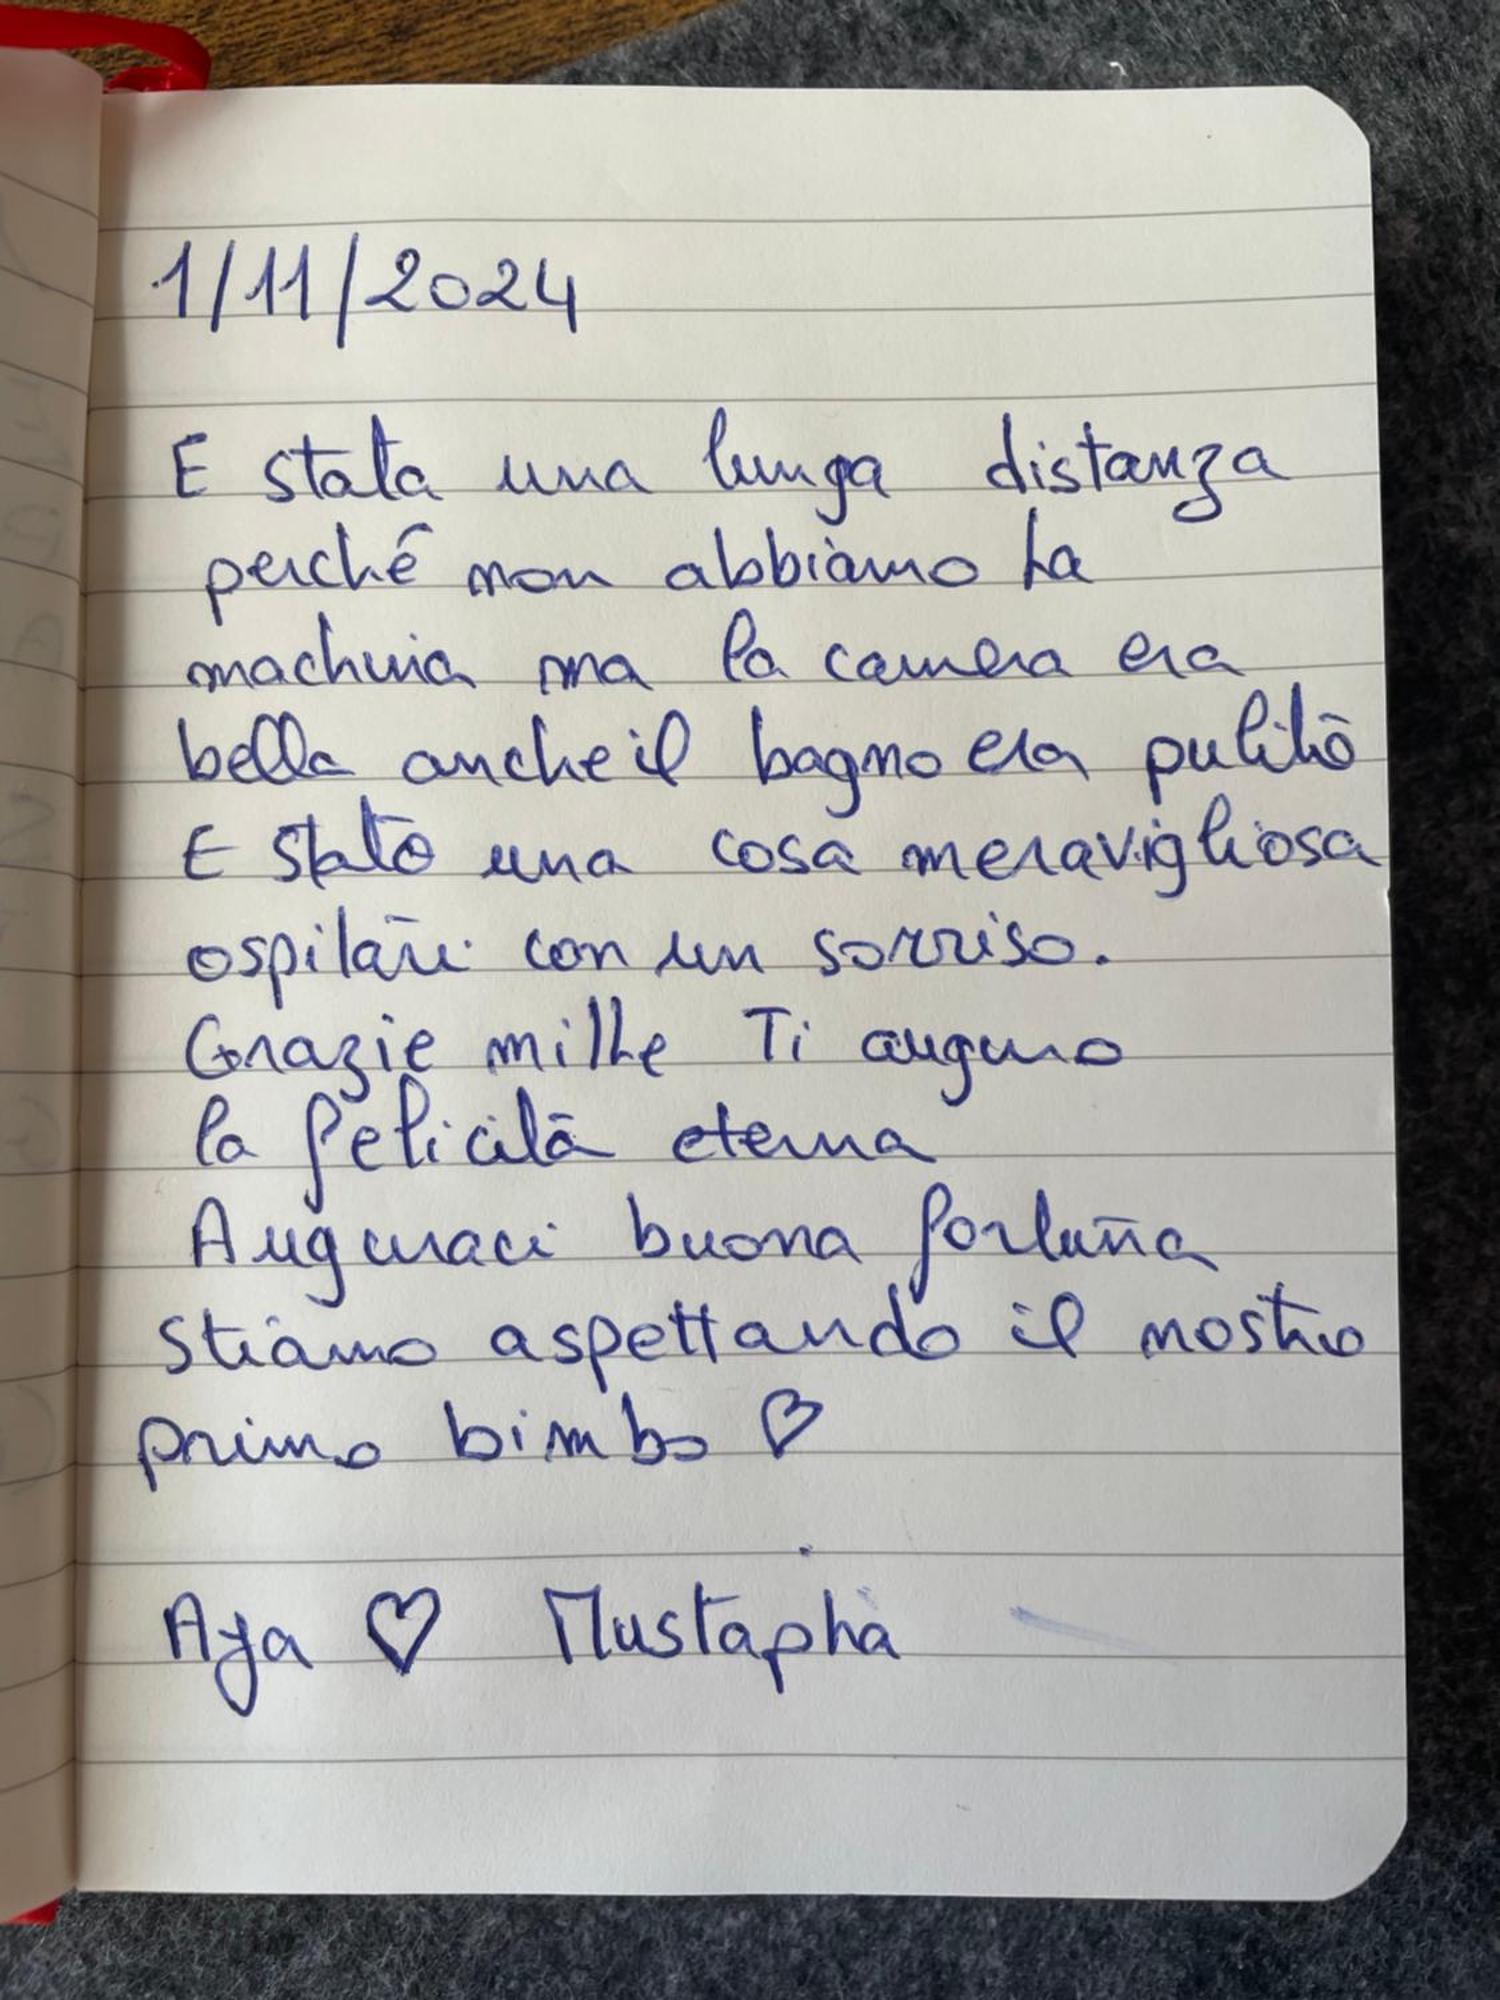 1/11/2024
E stata una lunga distanza
perché non abbiamo la
machina ma la camera era
bella anche il bagno era pulito
E stato una cosa meravigliosa
ospitare con un sorriso.
Grazie mille Ti auguro
la felicità eterna
Auguraci buona fortuna
stiamo aspettando il nostro
primo bimbo ♡
Aya ♡ Mustapha